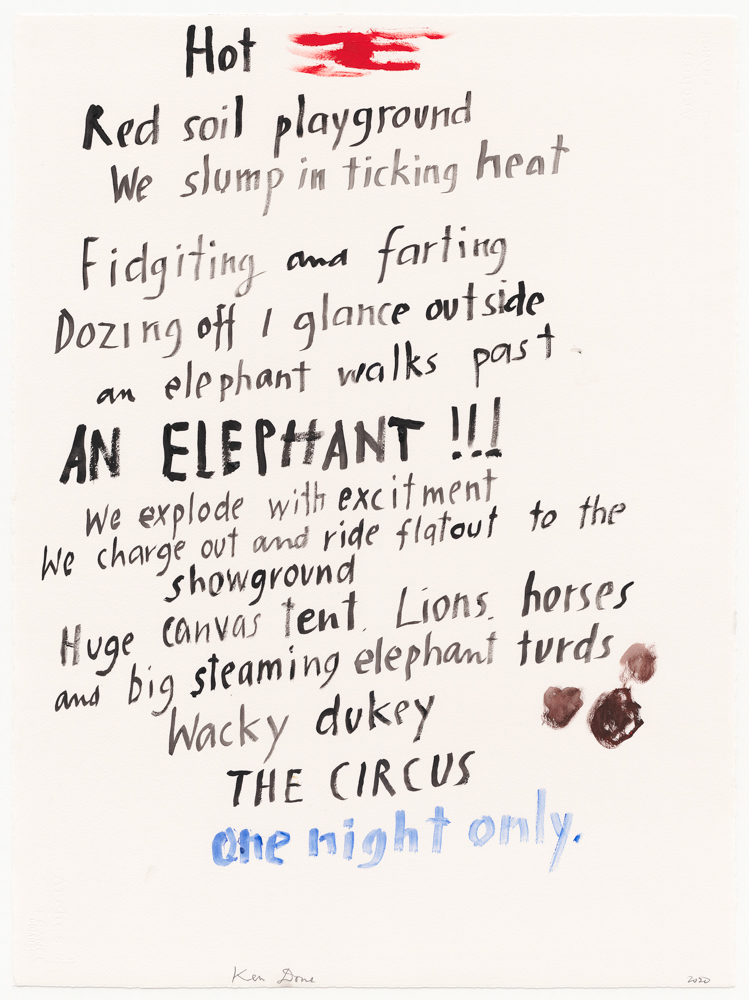 Hot
Red soil playground
We slump in ticking heat
Fidgiting and farting
Dozing off I glance outside
an elephant walks past
AN ELEPHANT !!!
We explode with excitment
We charge out and ride flatout to the
showground
Huge canvas tent. Lions. horses
and big steaming elephant turds
Wacky dukey
THE CIRCUS
one night only.
Ken Done 2020